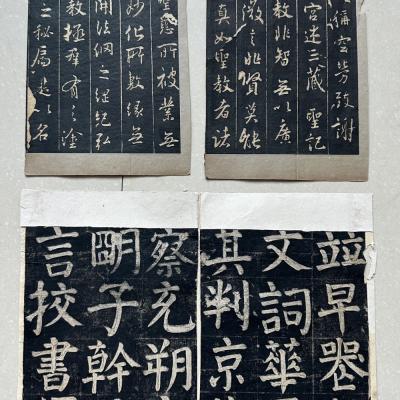 稱空勞致謝
宮述三藏聖記
教非智無以廣
微言非賢莫能
真如聖教者諸
聖慈所被業無
妙化所敷緣無
開法網之綱紀弘
教拯群有之塗
之秘扃是以名
竝早器
文詞華
其判京
察充朔
明子幹
言挍書